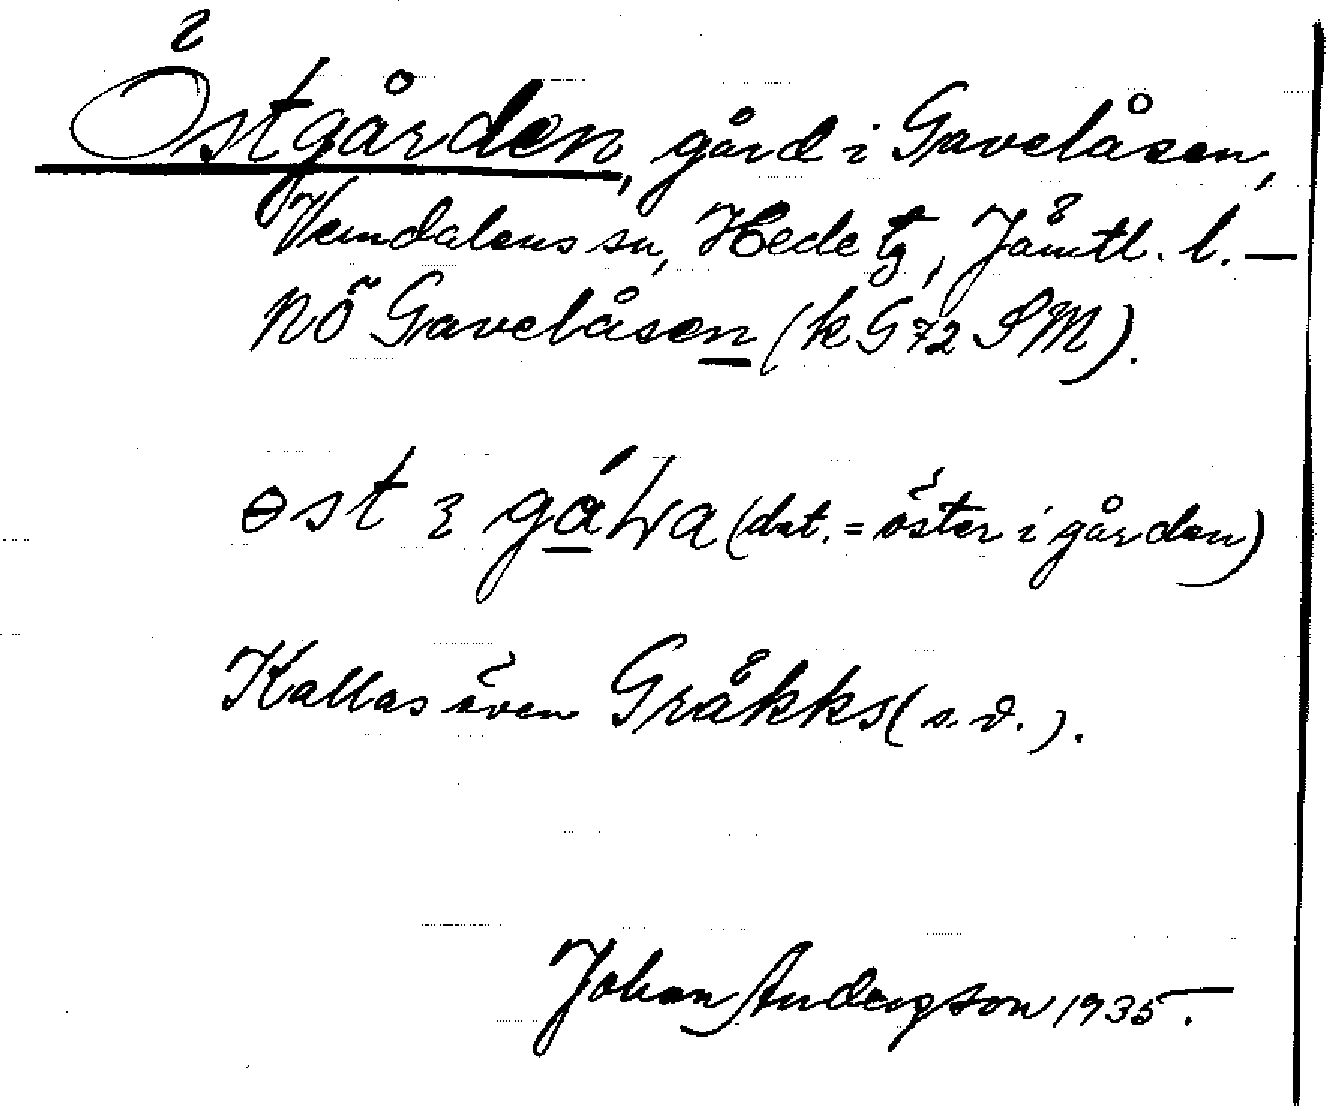 Östgården, gård i Gavelåsen,
Vemdalens sn, Hede tg, Jämtl. l. —
NÖ Gavelåsen (k G 72 SM).
(dat. = öster i gården)
Kallas även Gråkks (s. d.).
Johan Anderson 1935.